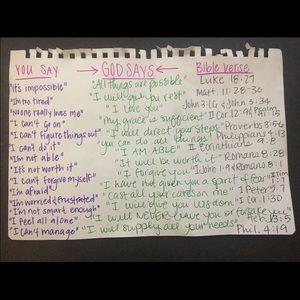 YOU SAY → GOD SAYS → Bible verse
"it's impossible" "All things are possible" Luke 18:27
"I'm too tired" "I will give you rest" Matt. 11:28-30
"No one really loves me" "I love you" John 3:16 & John 3:34
"I can't go on" "My grace is sufficient" II Cor. 12:9 & Psalm
"I can't figure things out" "I will direct your steps" Proverbs 3:5-6
"I can't do it" "you can do all things" Philippians 4:13
"I'm not able" "I AM ABLE" II Corinthians 9:8
"It's not worth it" "It will be worth it" Romans 8:28
"I can't forgive myself" "I forgive you" I John 1:9 & Romans 8:1
"I'm afraid" "I have not given you a spirit of fear" II Tim 1:7
"I'm worried & frustrated" "Cast all your cares on me" I Peter 5:7
"I'm not smart enough" "I will give you wisdom" I Cor. 1:30
"I feel all alone" "I will NEVER leave you or forsake you" Heb. 13:5
"I can't manage" "I will supply all your needs" Phil. 4:19